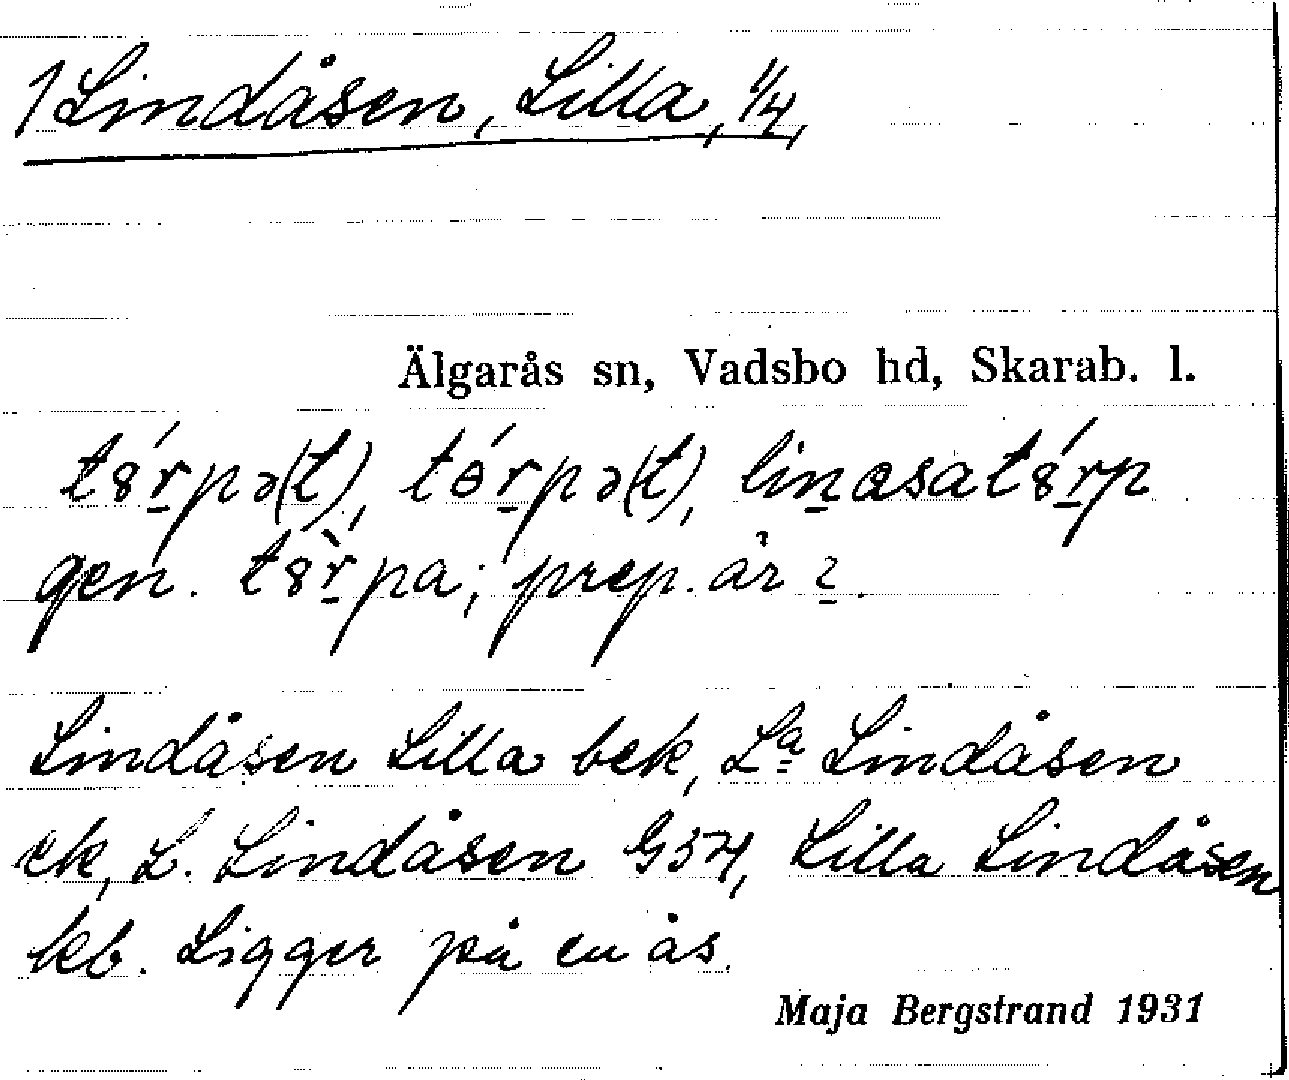 1 Lindåsen, Lilla, 1/4,
Älgarås sn, Vadsbo hd, Skarab. l.
t8́r̲pə(t), tɵ́r̲pə(t), lin̲asat8́r̲p
gen. t8̀r̲pa; prep. år 2̲.
Lindåsen Lilla bek, Lª Lindåsen
ek, L. Lindåsen G54, Lilla Lindåsen
kb. Ligger på en ås.
Maja Bergstrand 1931